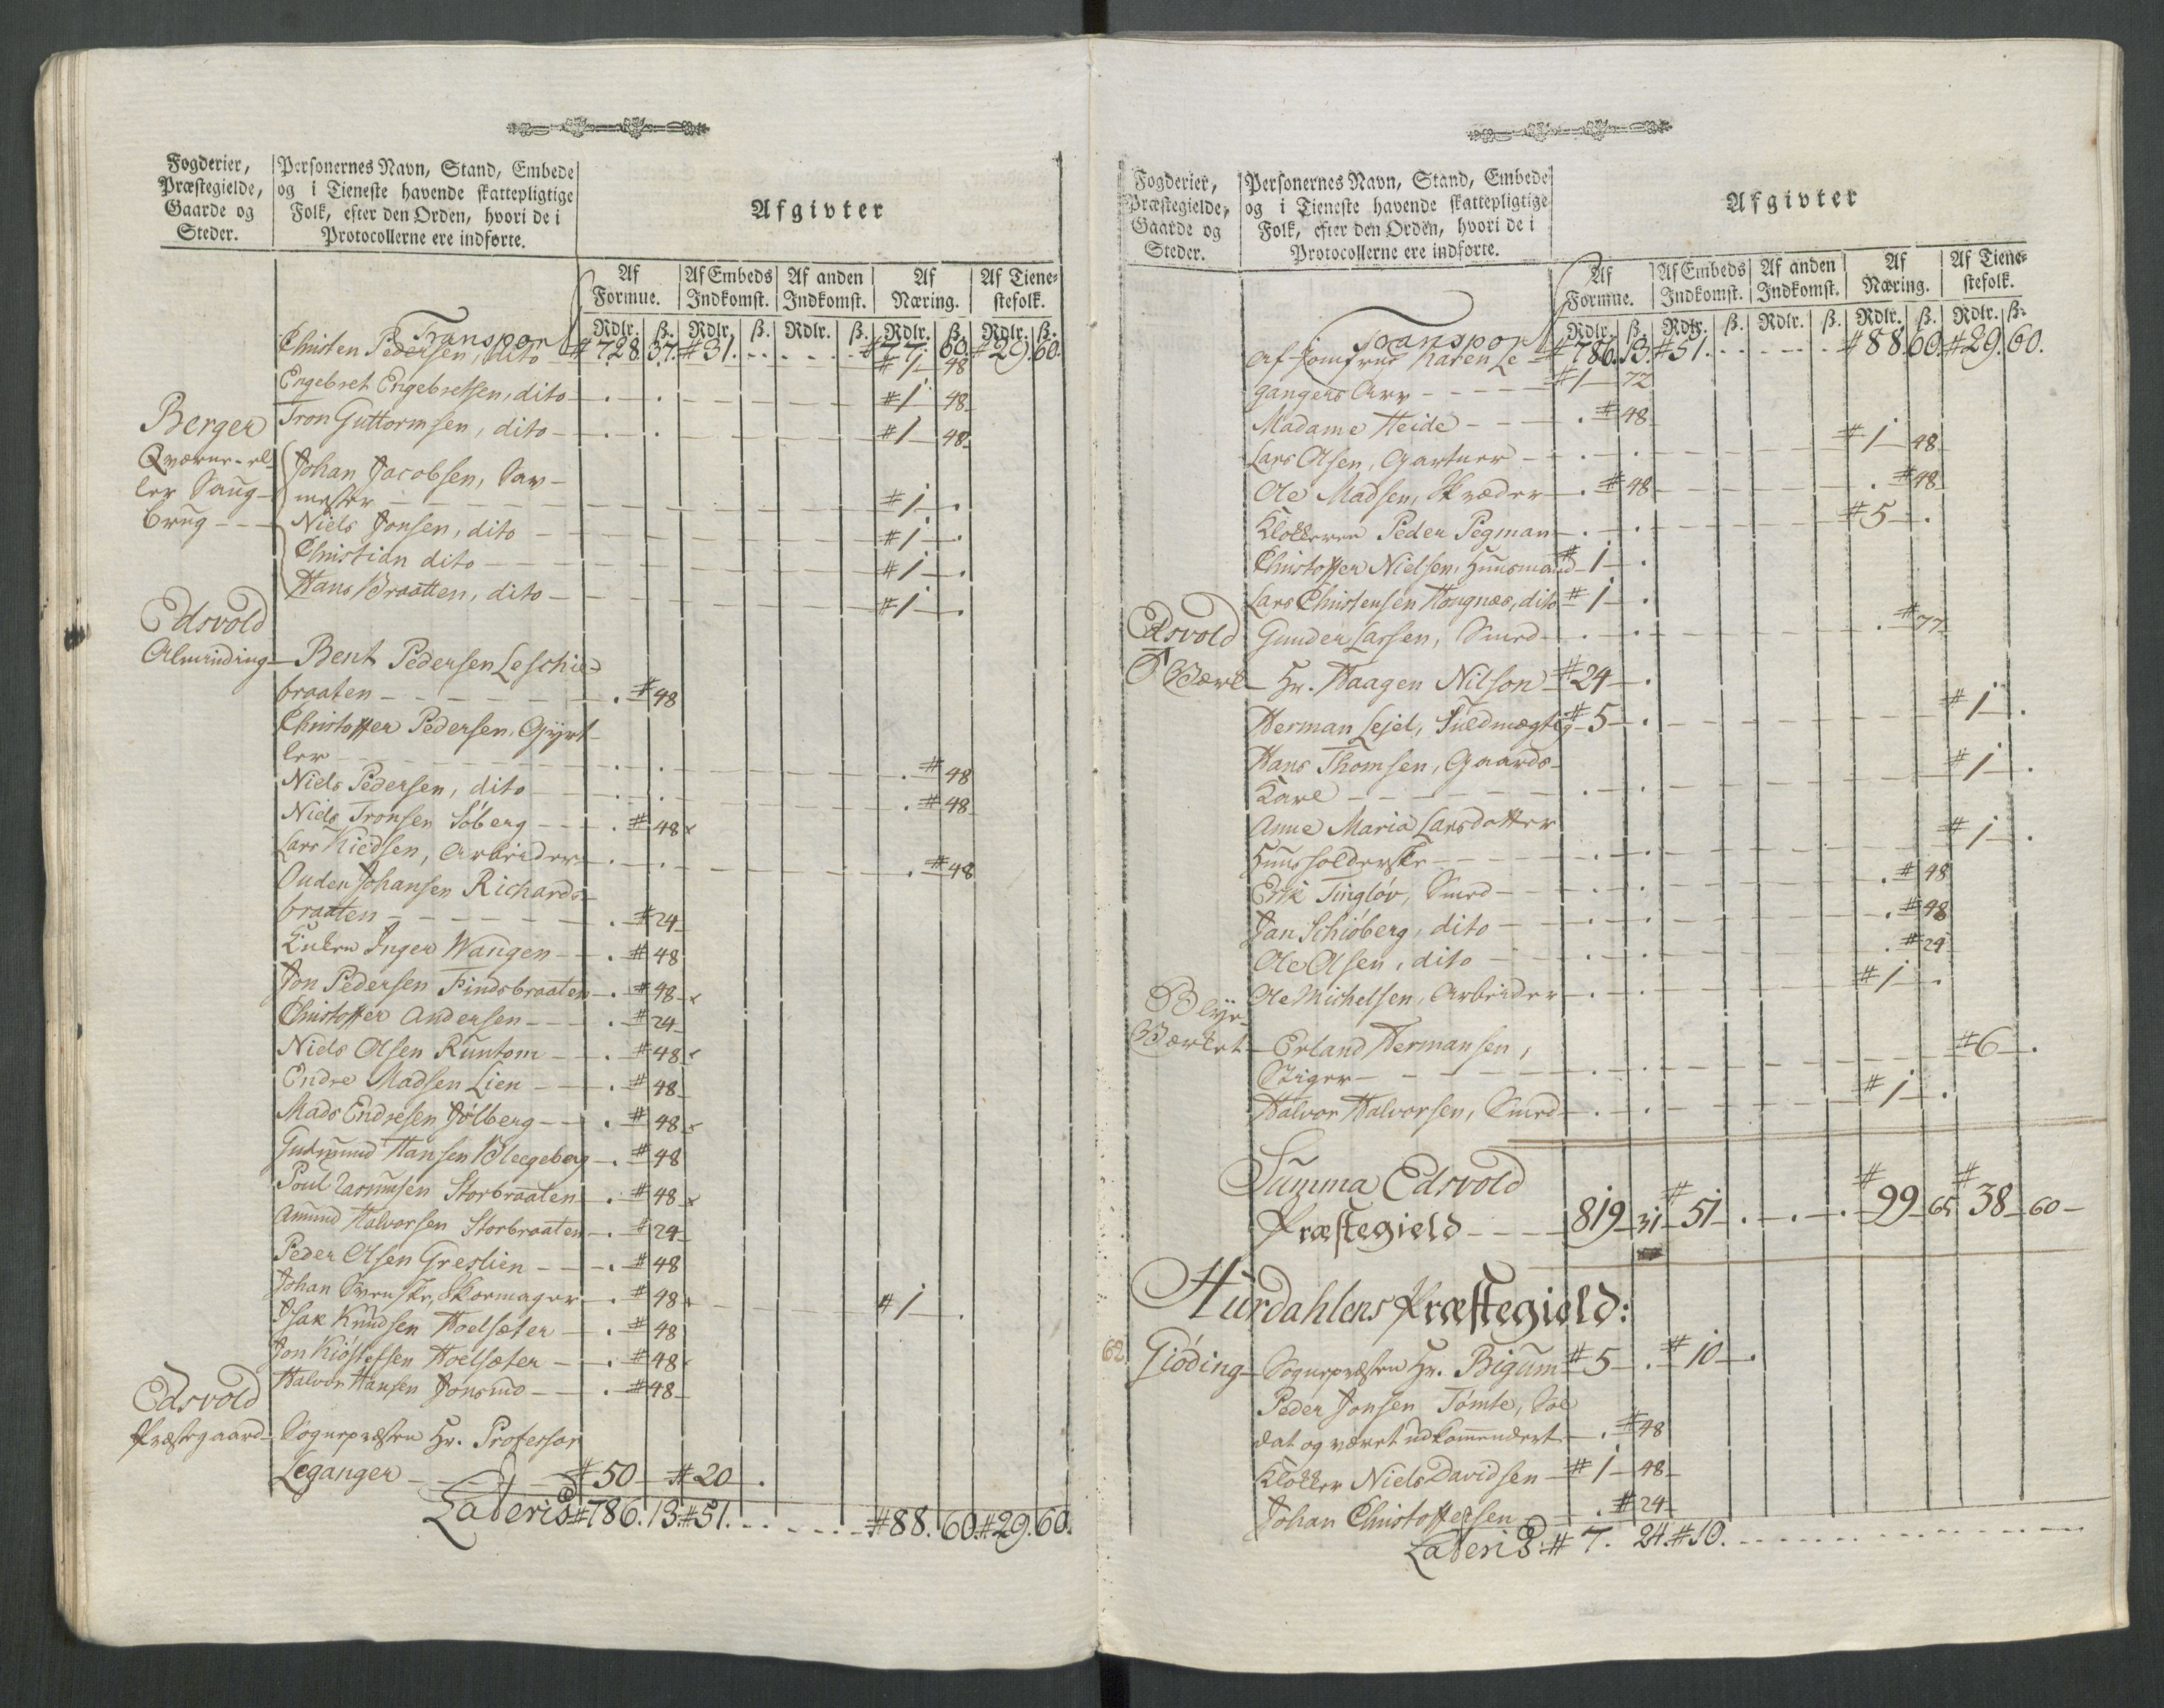 Fogderier, Præstegielde, Gaarde og Steder. | Personernes Navn, Stand, Embede og i Tieneste havende skattepligtige Folk, efter den Orden, hvori de i Protocollerne ere indførte. | Afgivter
Af Formue. | Af Embeds Indkomst. | Af anden Indkomst. | Af Næring. | Af Tienestefolk.
Rdlr. ß. Rdlr. ß. Rdlr. ß. Rdlr. ß. Rdlr. ß.
Transport # 728. 37. # 31. . . . . . # 77. 60. # 29. 60.
Christen Pedersen, dito # 1 - 48
Engebret Engebretsen, dito - # 1 48
Berger Tron Guttormsen, dito - # 1 - 48
Qværne- el-
ler Saug-
brug - - -
Johan Jacobsen, Sav-
mester - # 1 - .
Niels Jonsen, dito - # 1 - .
Christian dito - # 1 - .
Hans Braatten, dito - # 1 - .
Edsvold
Alminding - Bent Pedersen Leschie-
braaten - . # 48
Christoffer Pedersen Gyrt-
ler - . # 48
Niels Pedersen, dito - . # 48
Niels Tronsen Söberg - . # 48 x
Lars Kiedsen, Arbeider - . # 48
Ouden Johansen Richards-
braaten - . # 24
Enken Inger Wangen - . # 48
Jon Pedersen Findsbraaten - . # 48 x
Christoffer Andersen - . # 24
Niels Olsen Runtom - . # 48 x
Endre Madsen Lien - . # 48
Mads Endresen Jölberg - . # 48 x
Gudmund Hansen Bleegeberg - . # 48
Poul Rasmusen Storbraaten . # 48 x
Amund Halvorsen Storbraaten - . # 24
Peder Olsen Greslien - . # 48
Johan Svenske, Skoemager - . # 48 x # 1 - .
Isak Knudsen Hoelsæter - . # 48
Jon Kiöstelsen Hoelsæter - . # 48
Halvor Hansen Jonsmo - . # 48
Edsvold
Præstegaard - Sognepræsten Hr. Professor
Leganger - # 50 - # 20 - .
Lateris # 786. 13 # 51. . . . . . # 88. 60 # 29. 60.
Fogderier, Præstegielde, Gaarde og Steder. | Personernes Navn, Stand, Embede og i Tieneste havende skattepligtige Folk, efter den Orden, hvori de i Protocollerne ere indførte. | Afgivter
Af Formue. | Af Embeds Indkomst. | Af anden Indkomst. | Af Næring. | Af Tienestefolk.
Rdlr. ß. Rdlr. ß. Rdlr. ß. Rdlr. ß. Rdlr. ß.
Transport # 786. 13. # 51. . . . . # 88. 60 # 29. 60.
Af Jomfrue Karen Le-
gangers Arv - # 1 - 72
Madame Heide - . # 48
Lars Olsen, Gartner - # 1 - 48
Ole Madsen, Skræder - . # 48 . # 48
Klokkeren Peder Pegman - # 5 - .
Christoffer Nielsen, Huusmand # 1 - .
Lars Christensen Hougnæs, dito # 1 - .
Edsvold Gunder Larsen, Smed - . # 77
Værk - Hr. Haagen Nilson # 24 - .
Herman Lejel, Fuldmægtig # 5 - . # 1 .
Hans Thomsen, Gaards-
Karl - # 1 .
Anne Maria Larsdatter
Huusholderske - # 1 - .
Erik Tinglöv, Smed - . # 48
Jan Schiöberg, dito - . # 48
Ole Olsen, dito - . # 24
Ole Michelsen, Arbeider - # 1 - .
Blye-
Værket - Erland Hermansen,
Stiger - # 6 - .
Halvor Halvorsen, Smed - # 1 - .
Summa Edsvold
Præstegield - 819 - 31 # 51 - . - . - . # 99 - 65 # 38 - 60 -
Hurdahlens Præstegield:
62 Giöding - Sognepræsten Hr. Bigum # 5 - . # 10 - .
Peder Jonsen Tömte, Sol-
dat og været udkommendert - . # 48
Klokker Niels Davidsen - # 1 - 48
Johan Christoffersen . # 24
Lateris: # 7. 24. # 10. . . . . . .